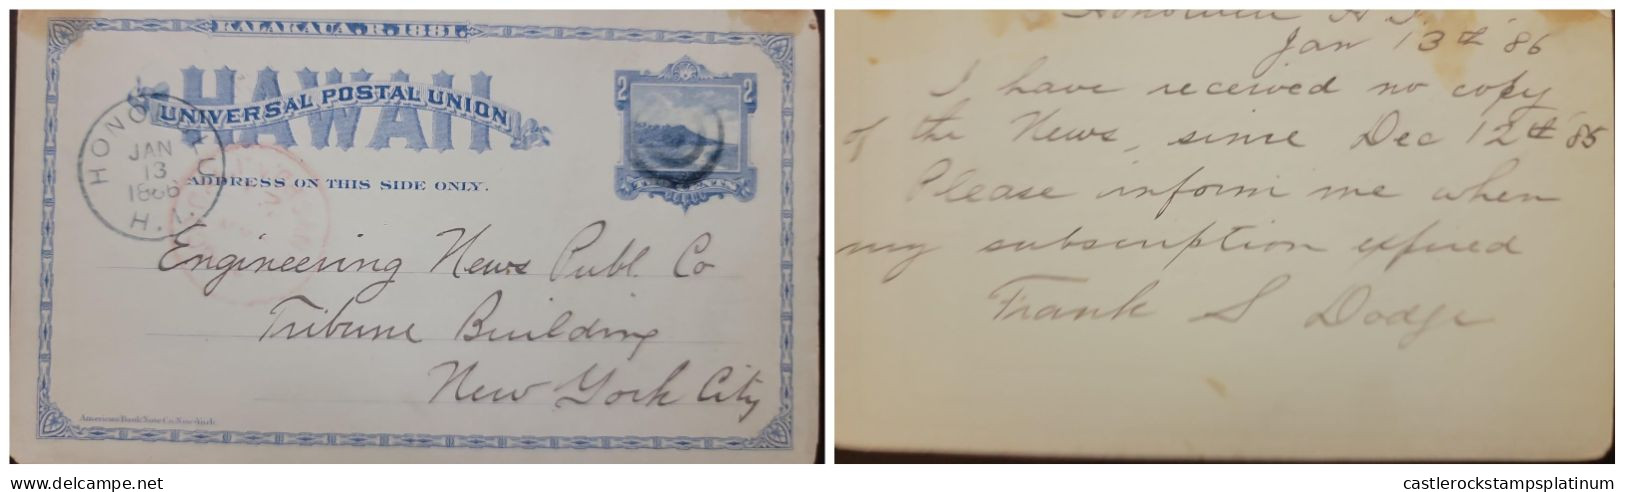 KALAKAUA. R. 1881.
HAWAII
UNIVERSAL POSTAL UNION
ADDRESS ON THIS SIDE ONLY.
2 2
TWO CENTS
HONOLULU
JAN
13
1886
H. I.
Engineering News Publ. Co
Tribune Building
New York City
American Bank Note Co. New-York.
Honolulu H I.
Jan 13th '86
I have received no copy
of the News, since Dec 12th '85
Please inform me when
my subscription expired
Frank S Dodge
castlerockstampsplatinum
delcampe.net